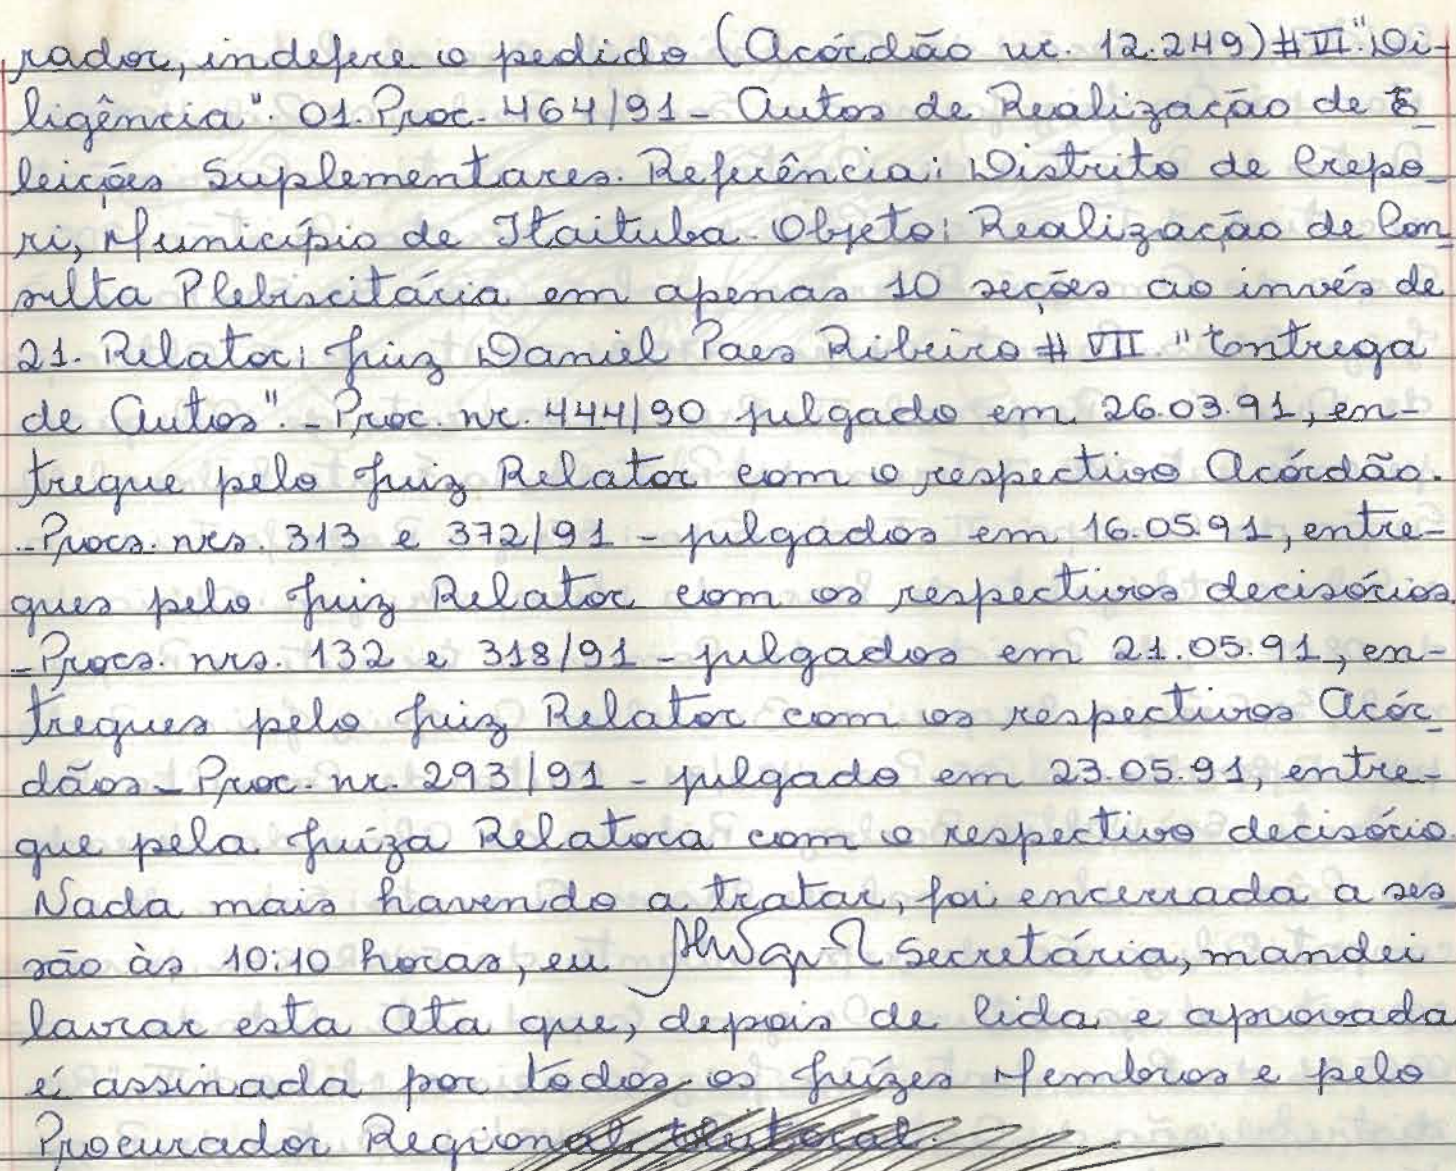 rador, indefere o pedido (Acórdão nr. 12.249) # VI. "Di-
ligência". 01. Proc. 464/91 - Autos de Realização de E
leições Suplementares. Referência: Distrito de Crepo
ri, Município de Itaituba. Objeto: Realização de Con
sulta Plebiscitária em apenas 10 seções ao invés de
21. Relator: Juiz Daniel Paes Ribeiro # VII. "Entrega
de Autos". - Proc. nr. 444/90 julgado em 26.03.91, en-
tregue pelo Juiz Relator com o respectivo Acórdão.
- Procs. nrs. 313 e 372/91 - julgados em 16.05.91, entre-
gues pelo Juiz Relator com os respectivos decisórios
- Procs. nrs. 132 e 318/91 - julgados em 21.05.91, en-
tregues pelo Juiz Relator com os respectivos Acór
dãos - Proc. nr. 293/91 - julgado em 23.05.91, entre-
gue pela Juíza Relatora com o respectivo decisório
Nada mais havendo a tratar, foi encerrada a ses
são às 10:10 horas, eu Secretária, mandei
lavrar esta Ata que, depois de lida e aprovada
é assinada por todos os Juízes Membros e pelo
Procurador Regional Eleitoral.